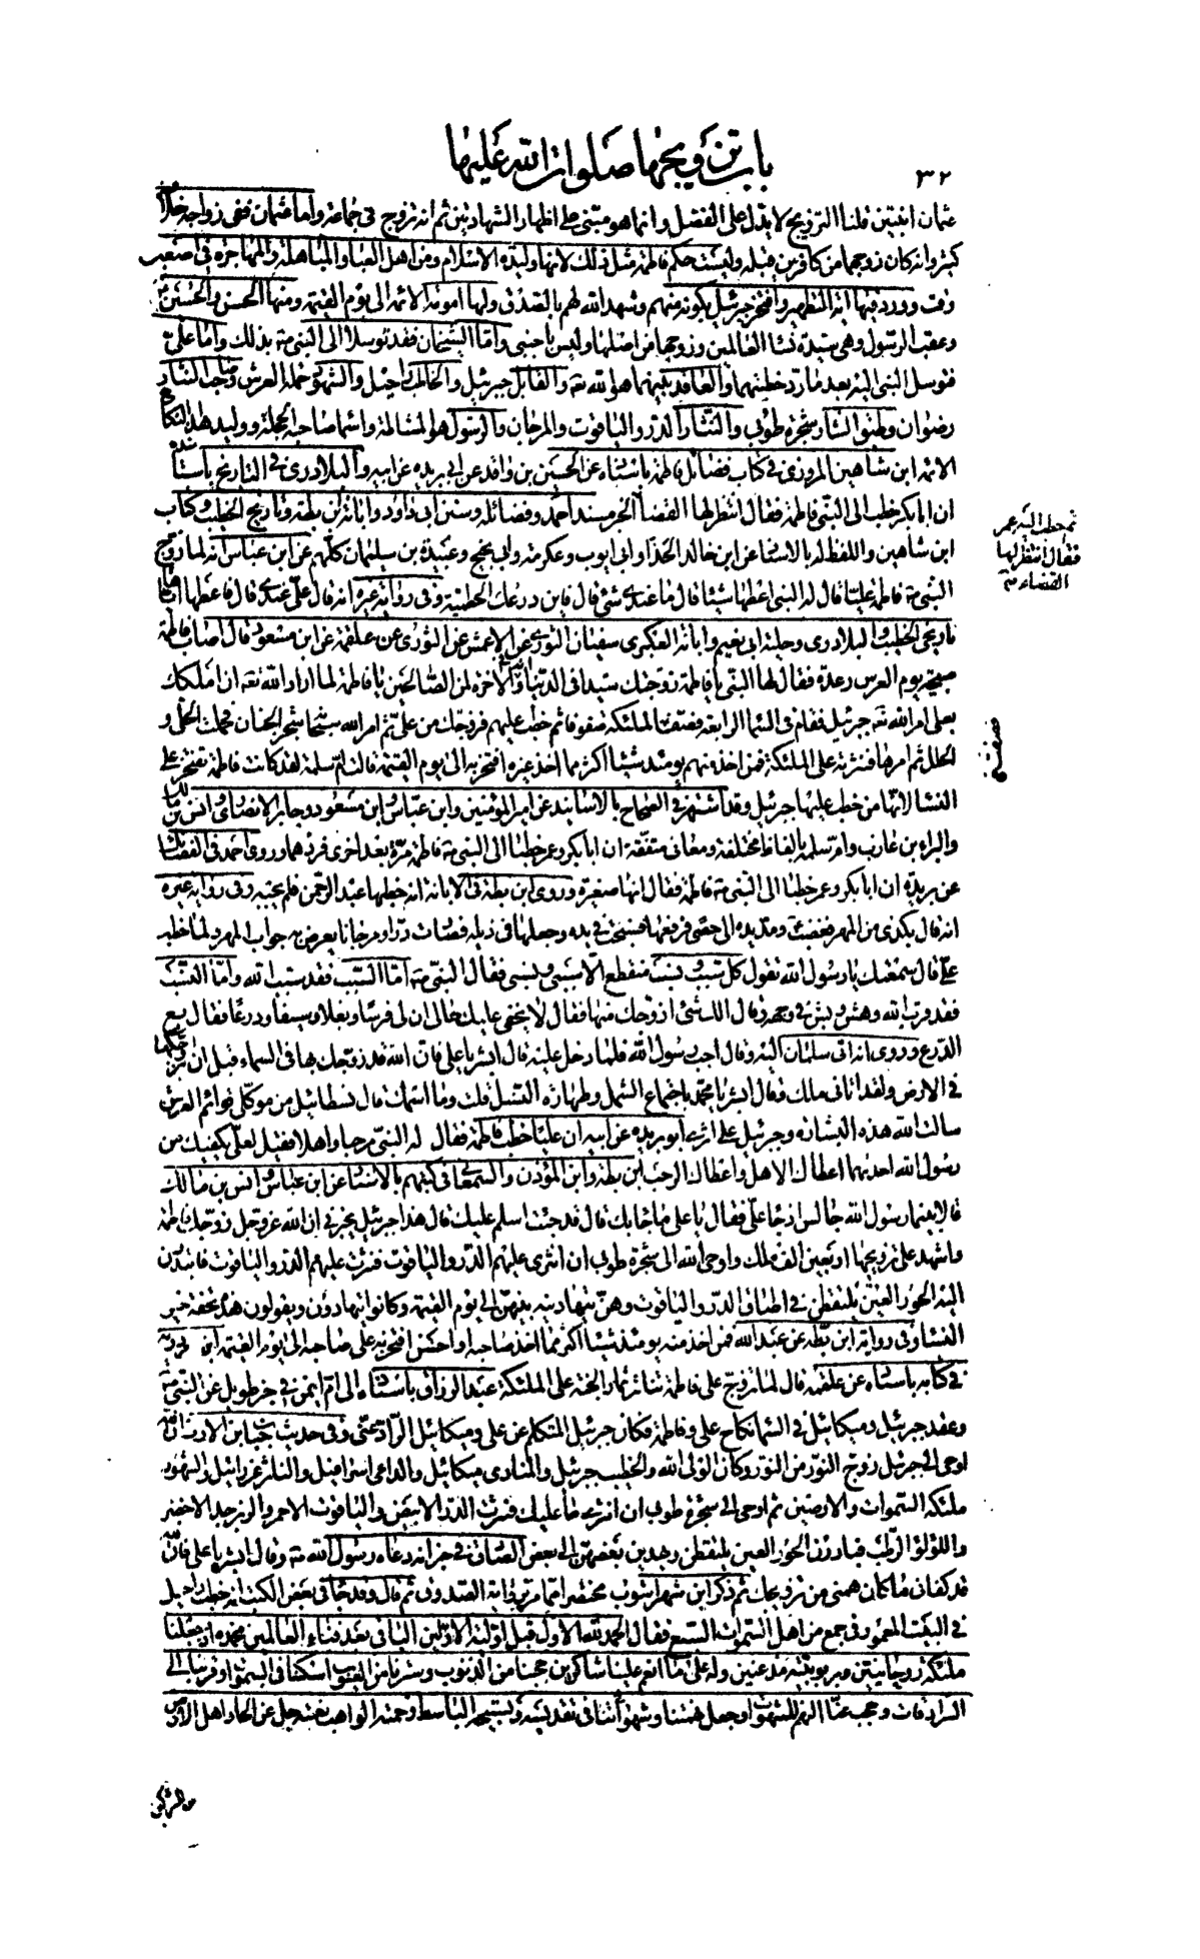 ٣٢
باب تزويجها صلوات الله عليها
عثمان ابنتين قلنا التزويج لا يدل على الفضل وانما هو مبني على اظهار الشهادتين ثم انه تزوج في جماعة واما عثمان ففي زواجه خلاف
كثير وانه كان زوجهما من كافرين قبله وليست حكم فاطمة مثل ذلك لانها وليدة الاسلام ومن اهل العبا والمباهلة والمهاجرة في اصعب
وقت وورد فيها اية التطهير وافتخر جبرئيل بكونه منهم وشهد الله لهم بالصدق ولها امومة الائمة الى يوم القيمة ومنها الحسن والحسين
وعقب الرسول وهي سيدة نساء العالمين وزوجها من اصلها وليس باجنبي واما الشيخان فقد توسلا الى النبي بذلك واما علي
فتوسل النبي اليه بعد ما رد خطبتهما والعاقد بينهما هو الله تع والقابل جبرئيل والخاطب راحيل والشهود حملة العرش وصاحب النثار
رضوان وطبق النثار شجرة طوبى والنثار الدر والياقوت والمرجان والرسول هو المشاطة واسما صاحبة الحجلة ووليد هذا النكاح
الائمة ابن شاهين المروزي في كتاب فضائل فاطمة باسناده عن الحسين بن واقد عن ابي بريدة عن ابيه والبلاذري في التاريخ باسناده
ان ابا بكر خطب الى النبي فاطمة فقال انتظر لها القضاء الخبر مسند احمد وفضائله وسنن ابي داود وابانة ابن بطة وتاريخ الخطيب وكتاب
ثم خطب اليه عمر
فقال انتظر لها
القضاء
ابن شاهين واللفظ له بالاسناد عن ابن خالد الحذاء وابي ايوب وعكرمة وابي نجيح وعبيدة بن سليمان كلهم عن ابن عباس انه لما زوج
النبي فاطمة عليا قال له النبي اعطها شيئا قال ما عندي شي قال فاين درعك الحطمية وفي رواية غيره انه قال علي عندي قال فاعطها اياها
تاريخي الخطيب والبلاذري وحلية ابي نعيم وابانة العكبري سفيان الثوري عن الاعمش عن الثوري عن علقمة عن ابن مسعود قال اصاب فاطمة
صبيحة يوم العرس رعدة فقال لها النبي يا فاطمة زوجتك سيدا في الدنيا وانه في الاخرة لمن الصالحين يا فاطمة لما اراد الله تع ان املكك
بعلي امر الله تع جبرئيل فقام في السما الرابعة فصف الملئكة صفوفا ثم خطب عليهم فزوجك من علي ثم امر الله سبحانه شجر الجنان فحملت الحلي و
الحلل ثم امرها فنثرته على الملئكة فمن اخذ منهم يومئذ شيئا اكثر مما اخذ غيره افتخر به الى يوم القيمة قالت ام سلمة لقد كانت فاطمة تفتخر على
النساء لانها من خطب عليها جبرئيل وقد اشتهر في الصحاح بالاسانيد عن امير المؤمنين وابن عباس وابن مسعود وجابر الانصاري وانس بن مالك
والبراء بن عازب وام سلمة بالفاظ مختلفة ومعاني متفقة ان ابا بكر وعمر خطبا الى النبي فاطمة مرة بعد اخرى فردهما وروى احمد في الفضائل
عن بريدة ان ابا بكر وعمر خطبا الى النبي فاطمة فقال انها صغيرة وروى ابن بطة في الابانة انه خطبها عبد الرحمن فلم يجبه وفي رواية غيره
انه قال بكذى من المهر فغضب ومد يده الى حصى فرفعها فسبحت في يده وجعلها في ذيله فصارت درا ومرجانا يعرض به جواب المهر ولما خطب
علي قال سمعتك يا رسول الله تقول كل سبب ونسب منقطع الا سببي ونسبي فقال النبي اما السبب فقد سبب الله واما النسب
فقد قرب الله وهش وبش في وجهه وقال الك شئ ازوجك منها فقال لا يخفى عليك حالي ان لي فرسا وبغلا وسيفا ودرعا فقال بع
الدرع وروي انه اتى سلمان اليه وقال اجب رسول الله فلما دخل عليه قال ابشر يا علي فان الله قد زوجك بها في السماء قبل ان ازوجكها
في الارض ولقد اتاني ملك وقال ابشر يا محمد باجتماع الشمل وطهارة النسل قلت وما اسمك قال نسطائيل من موكلي قوائم العرش
سالت الله هذه البشارة وجبرئيل على اثري ابو بريدة عن ابيه ان عليا خطب فاطمة فقال له النبي مرحبا واهلا فقيل لعلي يكفيك من
رسول الله احديهما اعطاك الاهل واعطاك الرحب ابن بطة وابن المؤذن والسمعاني في كتبهم بالاسناد عن ابن عباس وانس بن مالك
قالا بينما رسول الله جالس اذ جاء علي فقال يا علي ما جاء بك قال قد جئت اسلم عليك قال هذا جبرئيل يخبرني ان الله عز وجل زوجك فاطمة
واشهد على تزويجها اربعين الف ملك واوحى الله الى شجرة طوبى ان انثري عليهم الدر والياقوت فنثرت عليهم الدر والياقوت فابتدرن
اليه الحور العين يلتقطن في اطباق الدر والياقوت وهن يتهادينه بينهن الى يوم القيمة وكانوا يتهادون ويقولون هذه تحفة خير
النساء وفي رواية ابن بطة عن عبد الله فمن اخذ منه يومئذ شيئا اكثر مما اخذ صاحبه او احسن افتخر به على صاحبه الى يوم القيمة ابن مردويه
في كتابه باسناده عن علقمة قال لما تزوج علي فاطمة تناثر ثمار الجنة على الملئكة عبد الرزاق باسناده الى ام ايمن في خبر طويل عن النبي
وعقد جبرئيل وميكائيل في السما نكاح علي وفاطمة فكان جبرئيل المتكلم عن علي وميكائيل الراد عني وفي حديث خباب بن الارت ان الله
اوحى الى جبرئيل زوج النور من النور وكان الولي الله والخطيب جبرئيل والمنادي ميكائيل والداعي اسرافيل والناثر عزرائيل والشهود
ملئكة السموات والارضين ثم اوحى الى شجرة طوبى ان انثري ما عليك فنثرت الدر الابيض والياقوت الاحمر والزبرجد الاخضر
واللؤلؤ الرطب فبادرن الحور العين يلتقطن ويهدين بعضهن الى بعض الصادق في خبر انه دعاه رسول الله وقال ابشر يا علي فان الله
قد كفاني ما كان همني من تزويجك ثم ذكر ابن شهر اشوب مختصرا مما مر برواية الصدوق ثم قال وقد جاء في بعض الكتب انه خطب راحيل
في البيت المعمور في جمع من اهل السموات السبع فقال الحمد لله الاول قبل اولية الاولين الباقي بعد فناء العالمين نحمده اذ جعلنا
ملئكة روحانيين وبربوبيته مذعنين وله على ما انعم علينا شاكرين حجبنا من الذنوب وسترنا من العيوب اسكننا في السموات وقربنا الى
السرادقات وحجب عنا النهم للشهوات وجعل نهمتنا وشهوتنا في تقديسه وتسبيحه الباسط رحمته الواهب نعمته جل عن الحاد اهل الارض
من المشركين